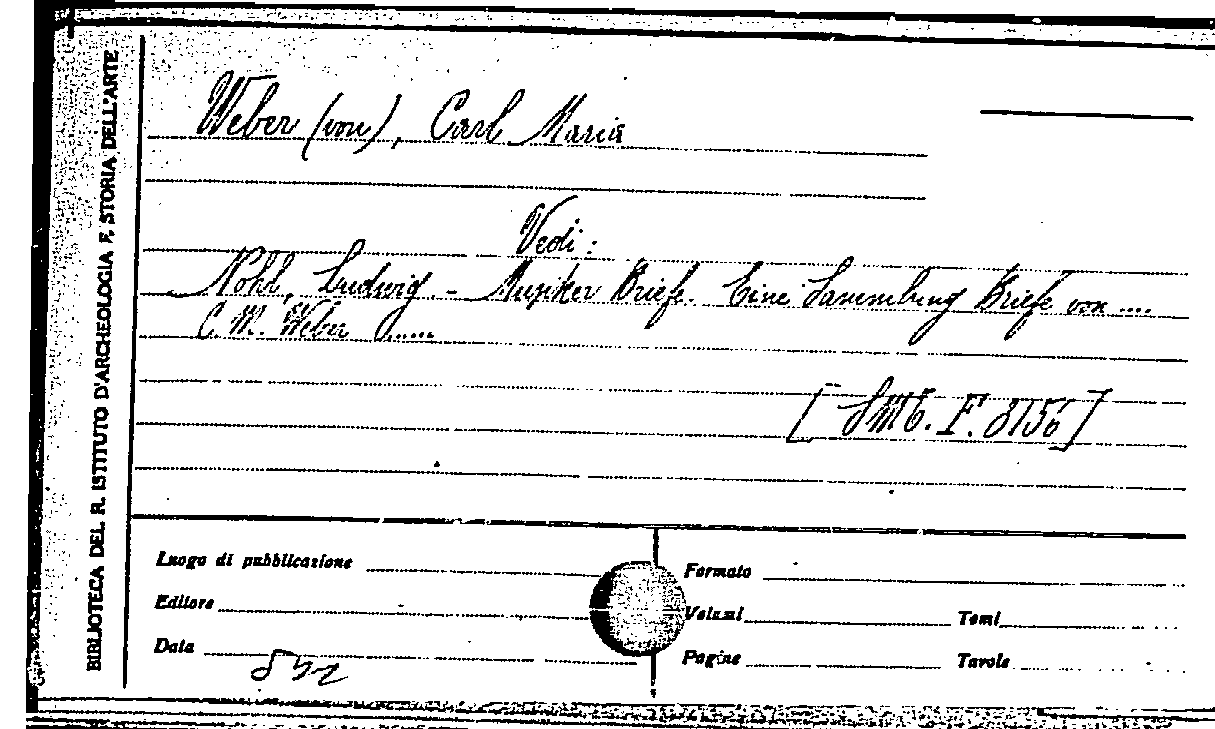 BIBLIOTECA DEL R. ISTITUTO D'ARCHEOLOGIA E STORIA DELL'ARTE
Weber (von), Carl Maria
Vedi:
Nohl, Ludwig. - Musiker Briefe. Eine Sammlung Briefe von ....
C. M. Weber .....
F. 8156]
Luogo di pubblicazione
Formato
Editore
Volumi
Tomi
Data
Pagine
Tavole